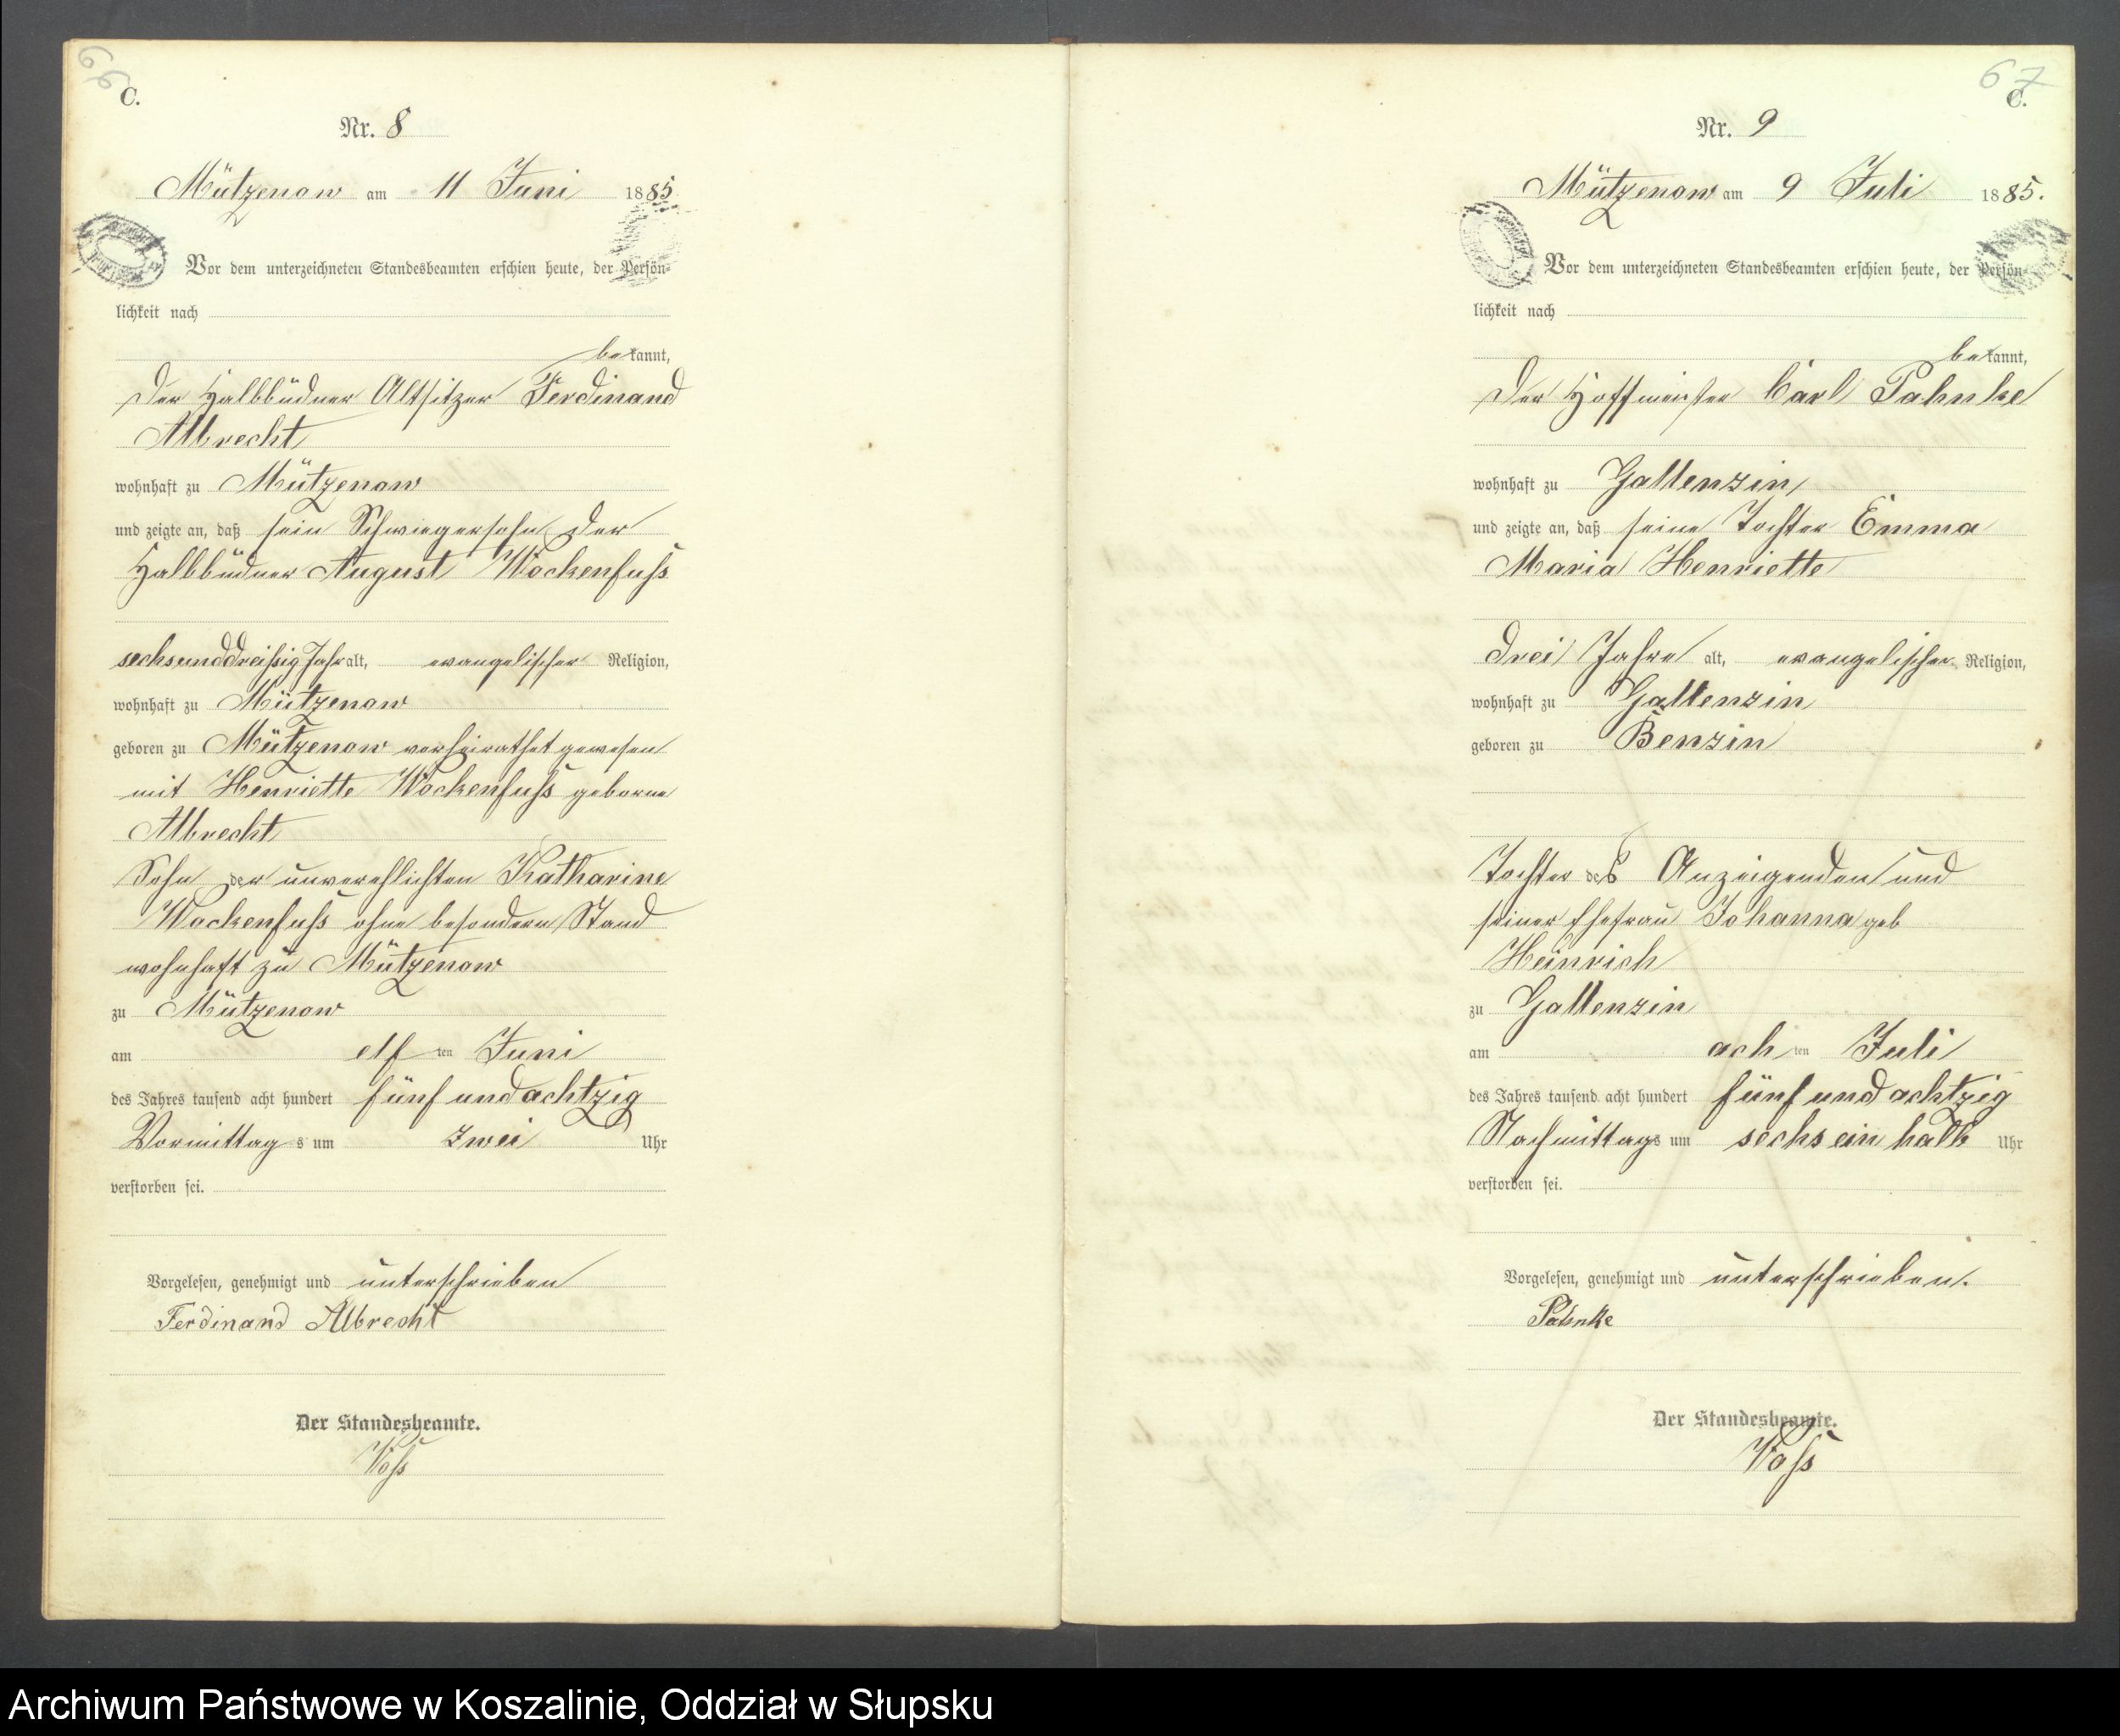 66
C.
Nr. 8
Mützenow am 11 Juni 1885
Vor dem unterzeichneten Standesbeamten erschien heute, der Persön-
lichkeit nach
bekannt,
Der Halbbüdner Altsitzer Ferdinand
Albrecht
wohnhaft zu Mützenow
und zeigte an, daß sein Schwiegersohn der
Halbbüdner August Wockenfuß
sechsunddreißig Jahr alt, evangelischer Religion,
wohnhaft zu Mützenow
geboren zu Mützenow verheirathet gewesen
mit Henriette Wockenfuß geborne
Albrecht
Sohn der unverehlichten Katharine
Wockenfuß ohne besondern Stand
wohnhaft zu Mützenow
zu Mützenow
am elf ten Juni
des Jahres tausend acht hundert fünf und achtzig
Vormittags um zwei Uhr
verstorben sei.
Vorgelesen, genehmigt und unterschrieben
Ferdinand Albrecht
Der Standesbeamte.
Voß
67
C.
Nr. 9
Mützenow am 9 Juli 1885.
Vor dem unterzeichneten Standesbeamten erschien heute, der Persön-
lichkeit nach
bekannt,
Der Hoffmeister Carl Pahnke
wohnhaft zu Gallenzin
und zeigte an, daß seine Tochter Emma
Maria Henriette
drei Jahre alt, evangelischer Religion,
wohnhaft zu Gallenzin
geboren zu Benzin
Tochter des Anzeigenden und
seiner Ehefrau Johanna geb
Heinrich
zu Gallenzin
am ach ten Juli
des Jahres tausend acht hundert fünf und achtzig
Nachmittags um sechs ein halb Uhr
verstorben sei.
Vorgelesen, genehmigt und unterschrieben.
Pahnke
Der Standesbeamte.
Voß
Archiwum Państwowe w Koszalinie, Oddział w Słupsku